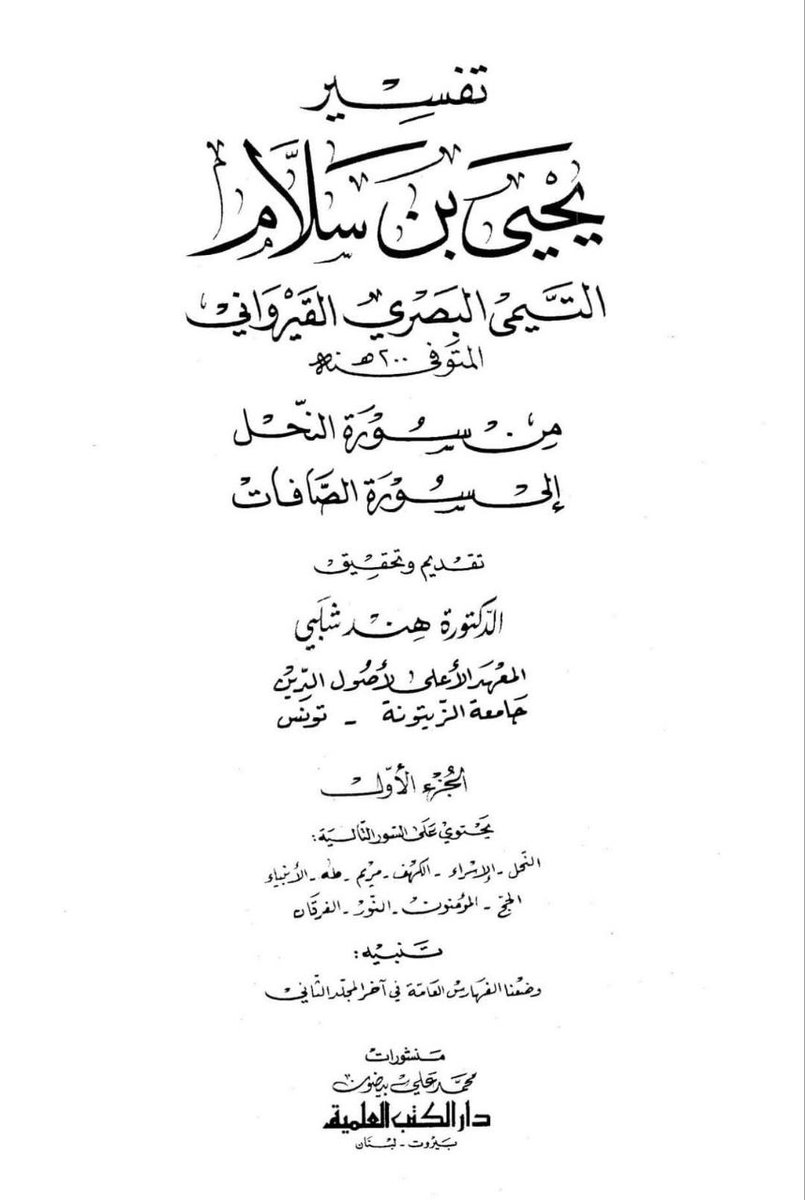 تفسير
يحيى بن سلام
التيمي البصري القيرواني
المتوفى ٢٠٠ هـ سنة
من سورة النحل
إلى سورة الصافات
تقديم وتحقيق
الدكتورة هند شلبي
المعهد الأعلى لأصول الدين
جامعة الزيتونة - تونس
الجزء الأول
يحتوي على السور التالية:
النحل - الإسراء - الكهف - مريم - طه - الأنبياء
الحج - المؤمنون - النور - الفرقان
تنبيه:
وضعنا الفهارس العامة في آخر المجلد الثاني
منشورات
محمد علي بيضون
دار الكتب العلمية
بيروت - لبنان